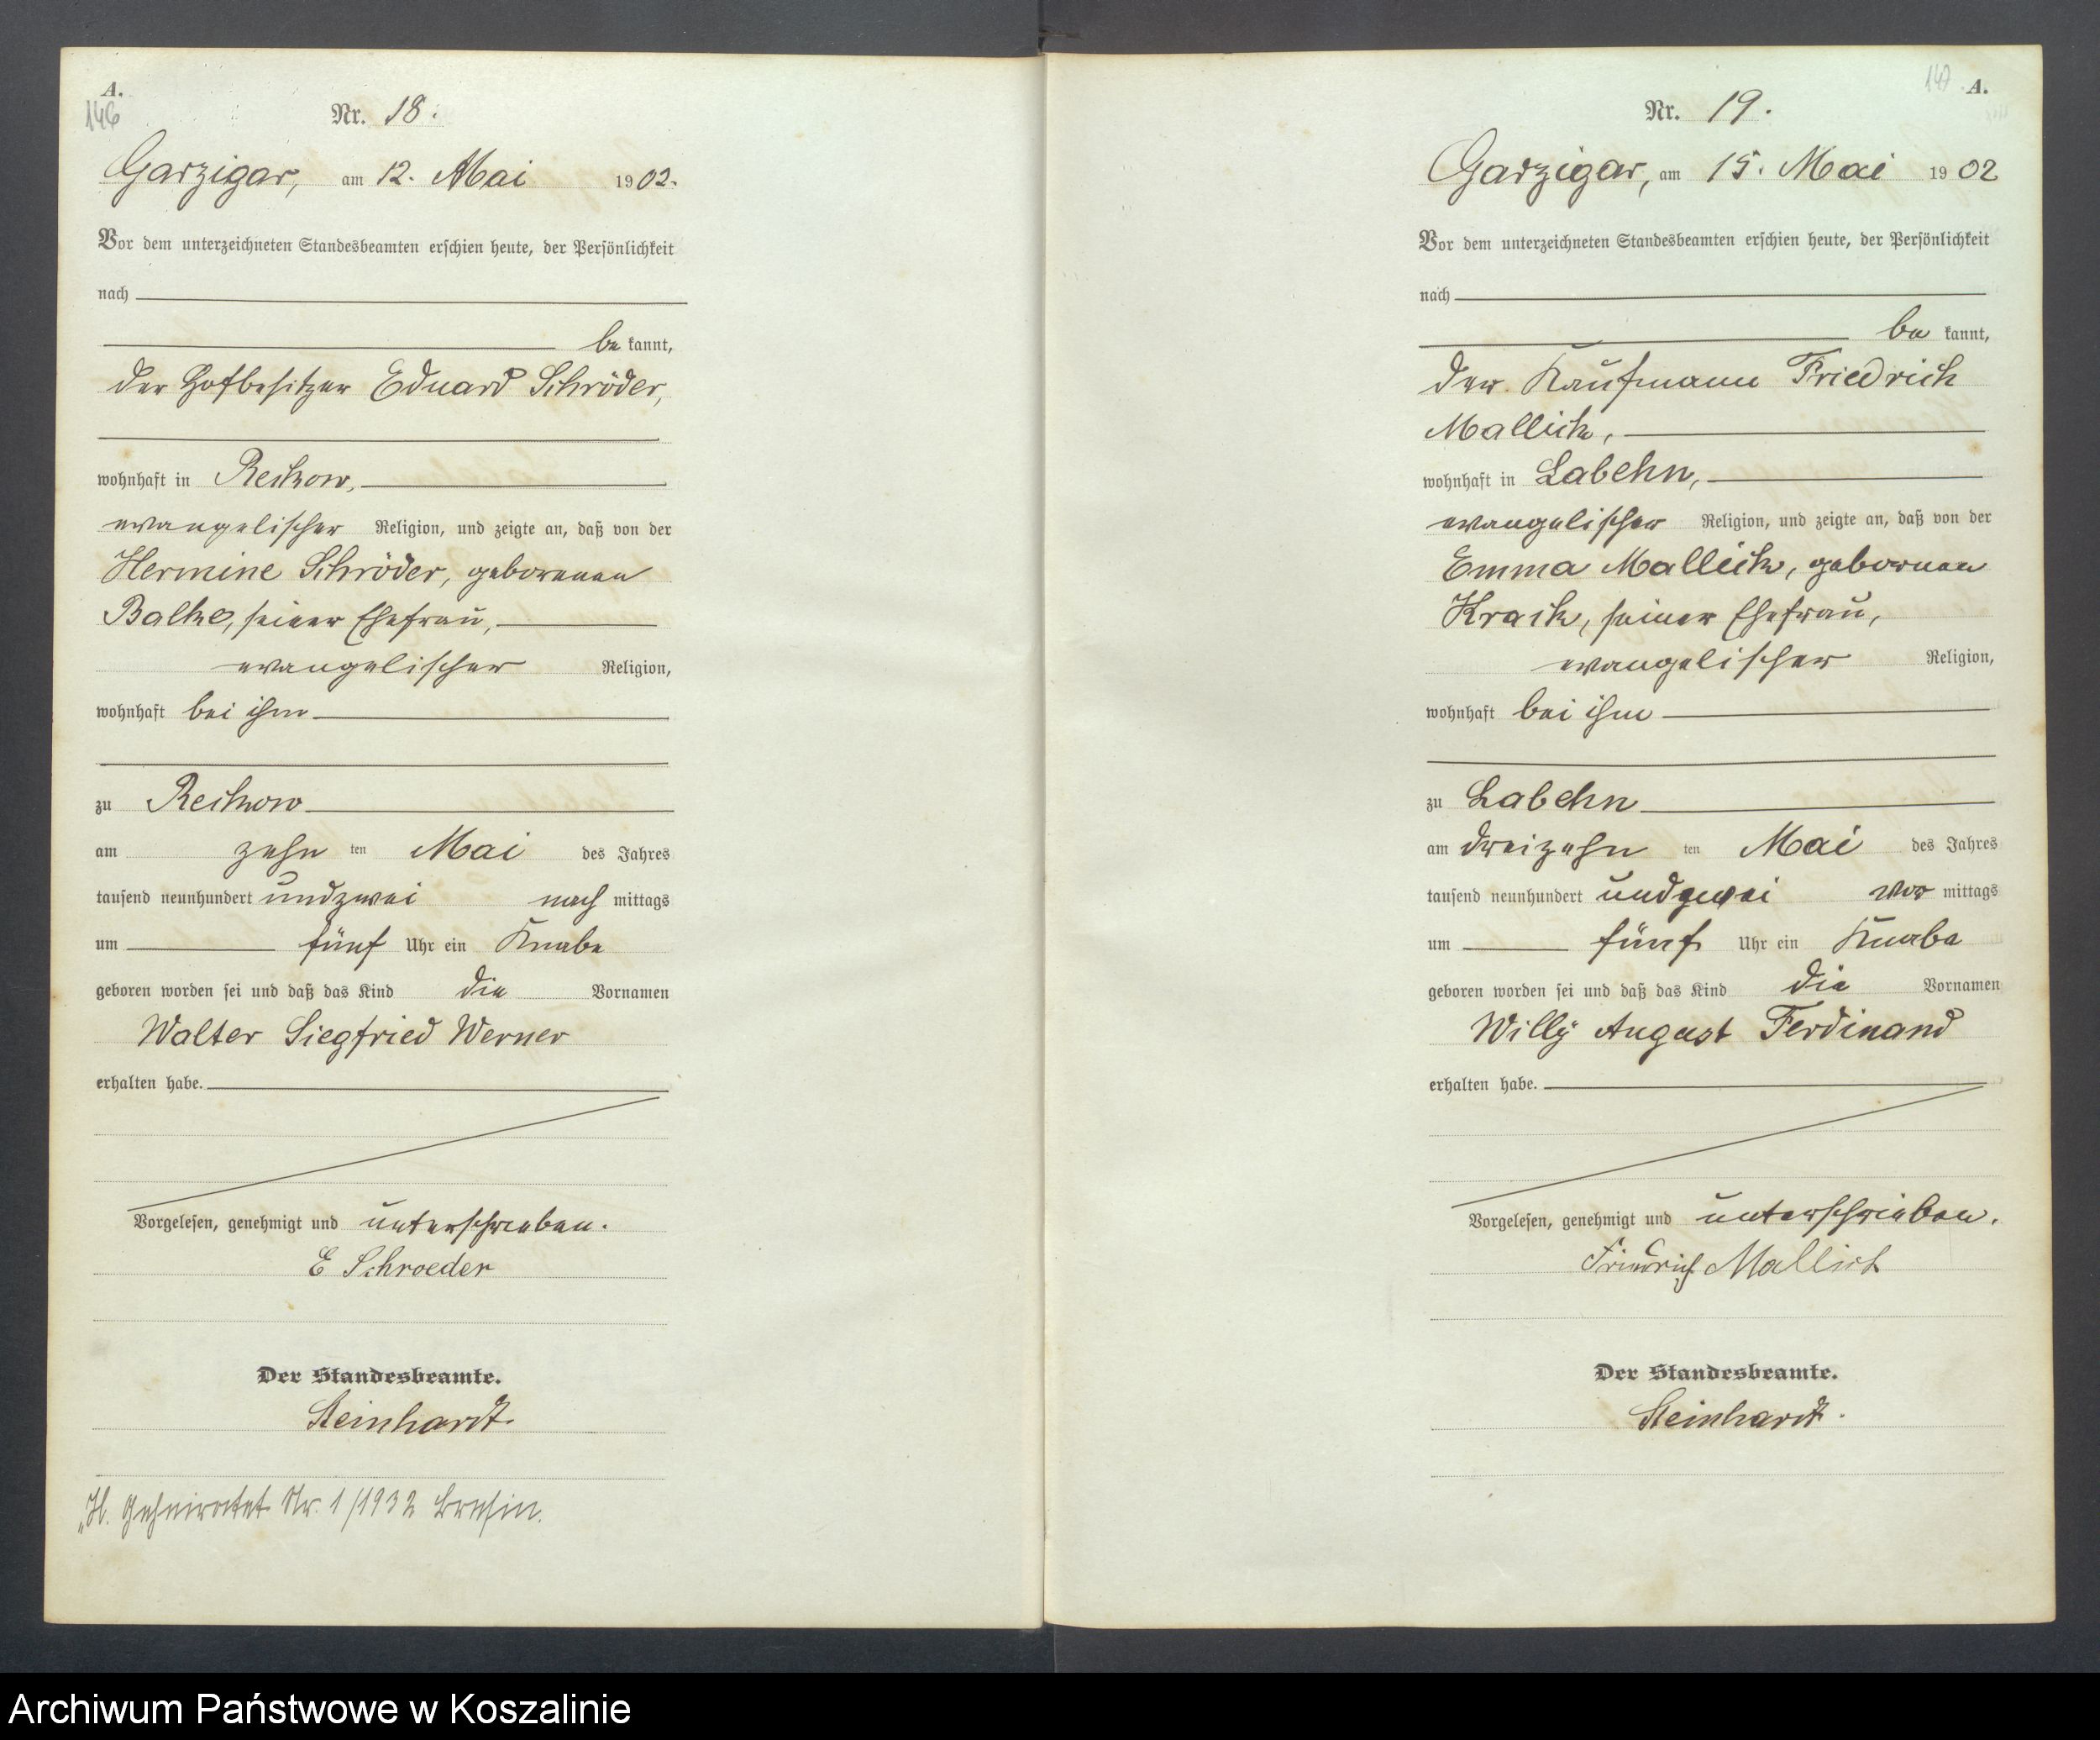 A.
146
Nr. 18.
Garzigar, am 12. Mai 1902.
Vor dem unterzeichneten Standesbeamten erschien heute, der Persönlichkeit
nach
bekannt,
der Hofbesitzer Eduard Schröder,
wohnhaft in Reckow,
evangelischer Religion, und zeigte an, daß von der
Hermine Schröder, geborenen
Balke, seiner Ehefrau,
evangelischer Religion,
wohnhaft bei ihm
zu Reckow
am zehn ten Mai des Jahres
tausend neunhundert undzwei nachmittags
um fünf Uhr ein Knabe
geboren worden sei und daß das Kind die Vornamen
Walter Siegfried Werner
erhalten habe.
Vorgelesen, genehmigt und unterschrieben.
E Schroeder
Der Standesbeamte.
Steinhardt.
Geheiratet Nr. 1/1932
147 A.
Nr. 19.
Garzigar, am 15. Mai 1902
Vor dem unterzeichneten Standesbeamten erschien heute, der Persönlichkeit
nach
bekannt,
der Kaufmann Friedrich
Mallick,
wohnhaft in Labehn,
evangelischer Religion, und zeigte an, daß von der
Emma Mallick, gebornen
Krack, seiner Ehefrau,
evangelischer Religion,
wohnhaft bei ihm
zu Labehn
am dreizehn ten Mai des Jahres
tausend neunhundert undzwei vormittags
um fünf Uhr ein Knabe
geboren worden sei und daß das Kind die Vornamen
Willy August Ferdinand
erhalten habe.
Vorgelesen, genehmigt und unterschrieben.
Friedrich Mallick
Der Standesbeamte.
Steinhardt.
Archiwum Państwowe w Koszalinie